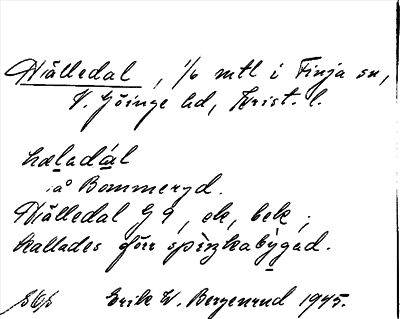 Hälledal, 1/6 mtl i Finja sn,
V. Göinge hd, Krist. l.
hæladál
på Bommeryd.
Hälledal G 9, ek, bek,
kallades förr spiŋkabỳgad.
Erik W. Bergenrud 1945.